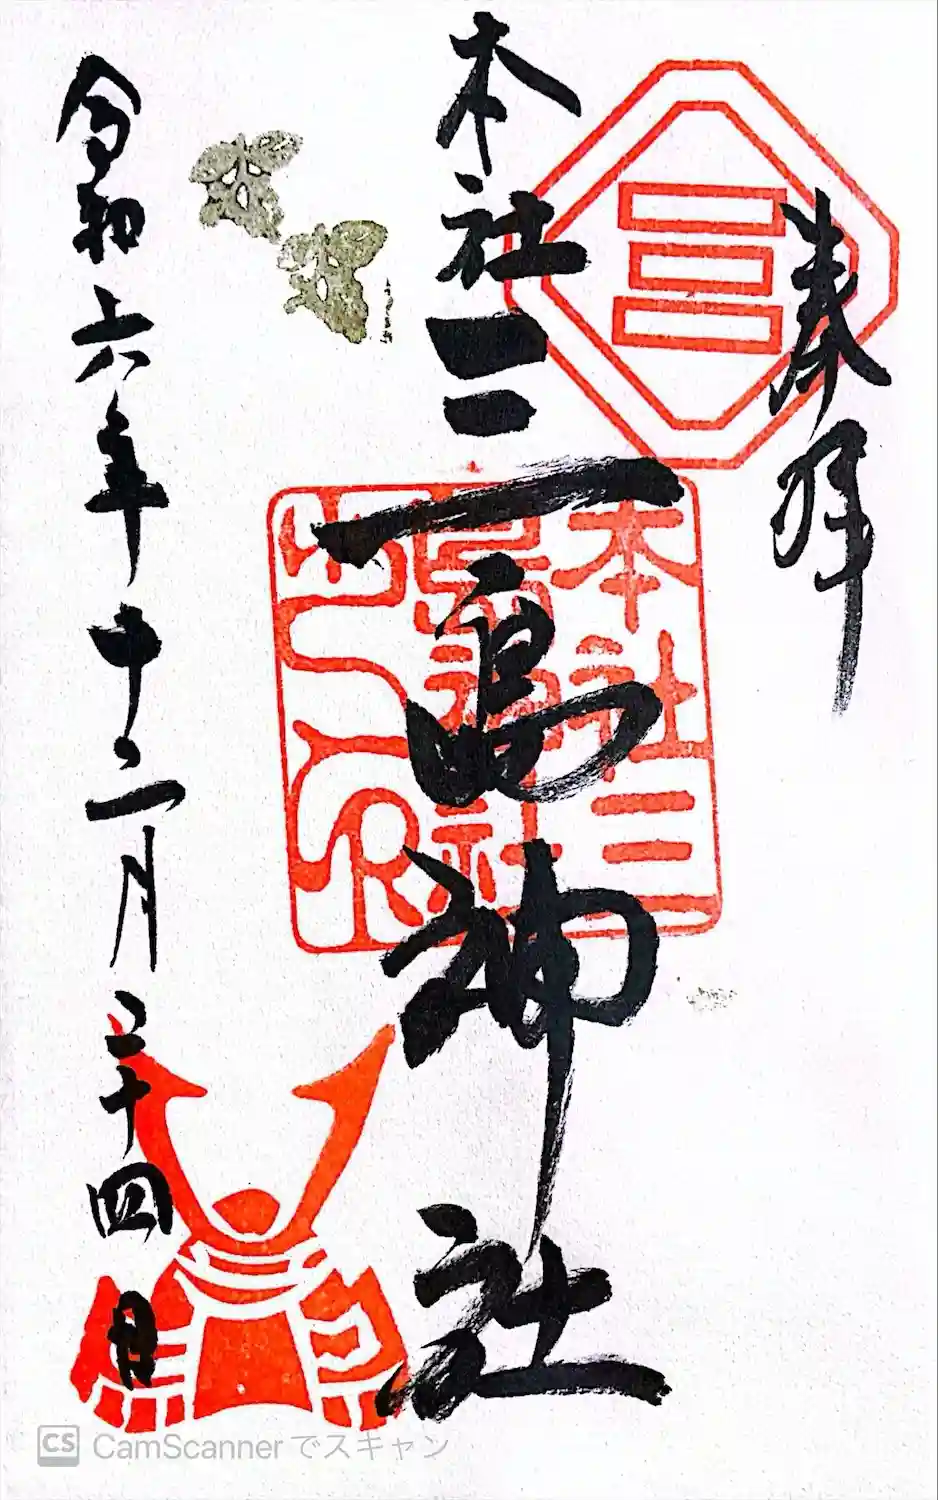 奉拝
本社三島神社
本社三
島神社
令和六年十二月二十四日
CS CamScannerでスキャン